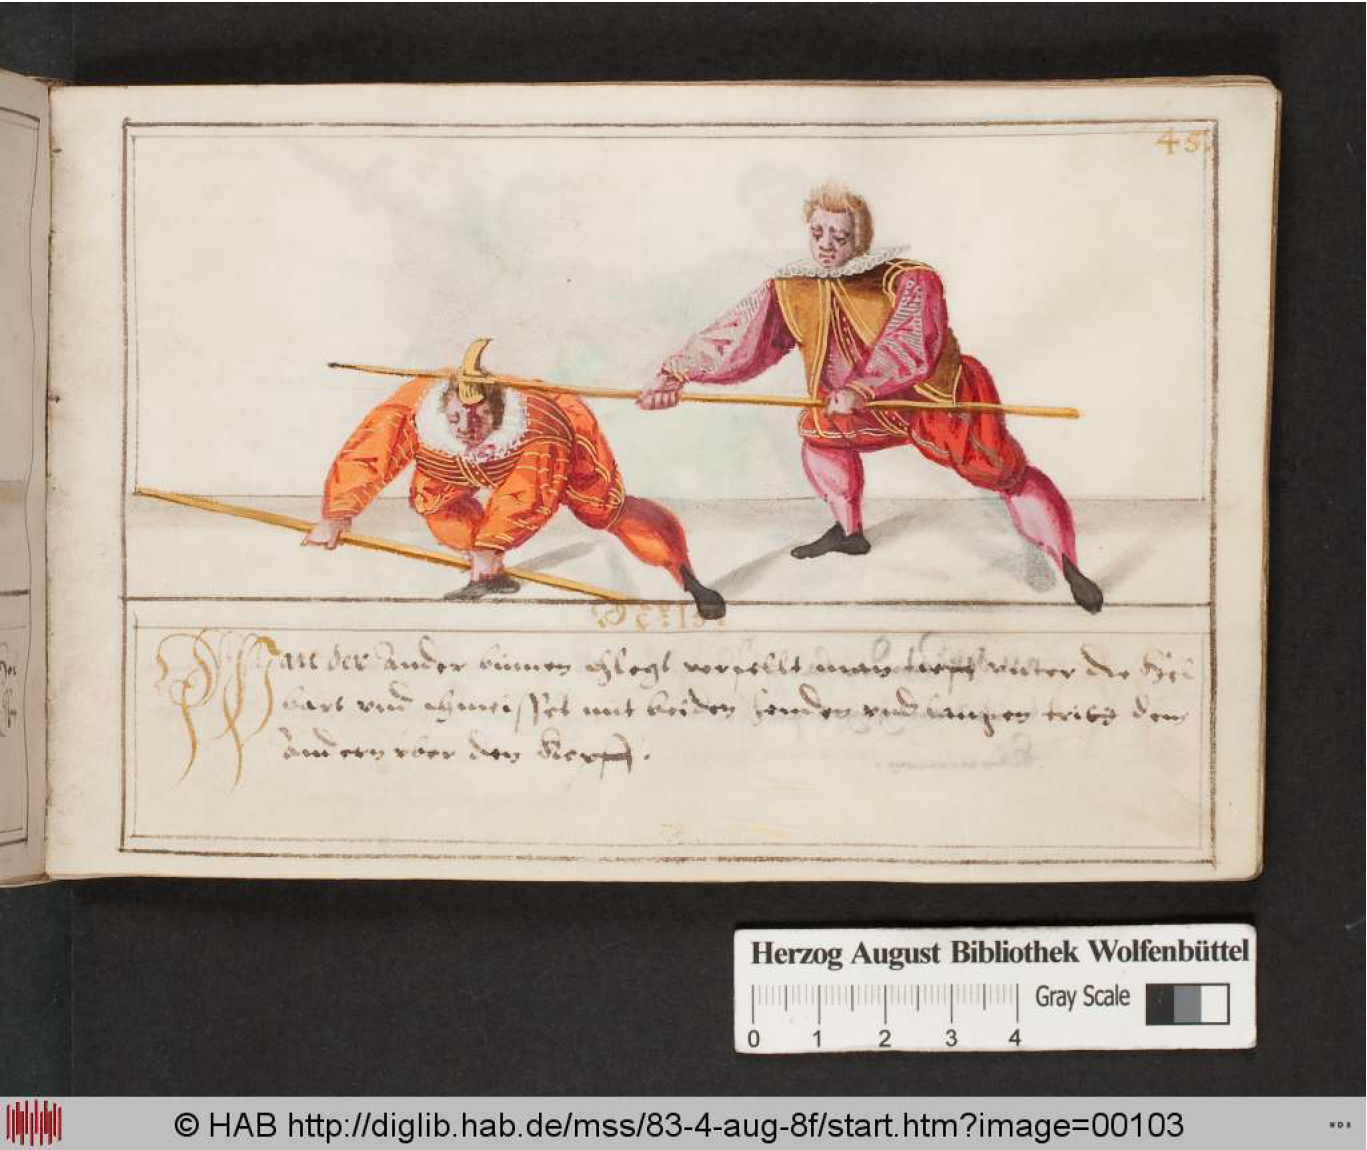 45.
Wan der Ander binnen schlegt verfellt man tieff unter die Hel
bart vnd schmeisset mit beiden henden vnd langen tritt dem
Andern vber den Kopff.
Herzog August Bibliothek Wolfenbüttel
Gray Scale
0 1 2 3 4
© HAB http://diglib.hab.de/mss/83-4-aug-8f/start.htm?image=00103